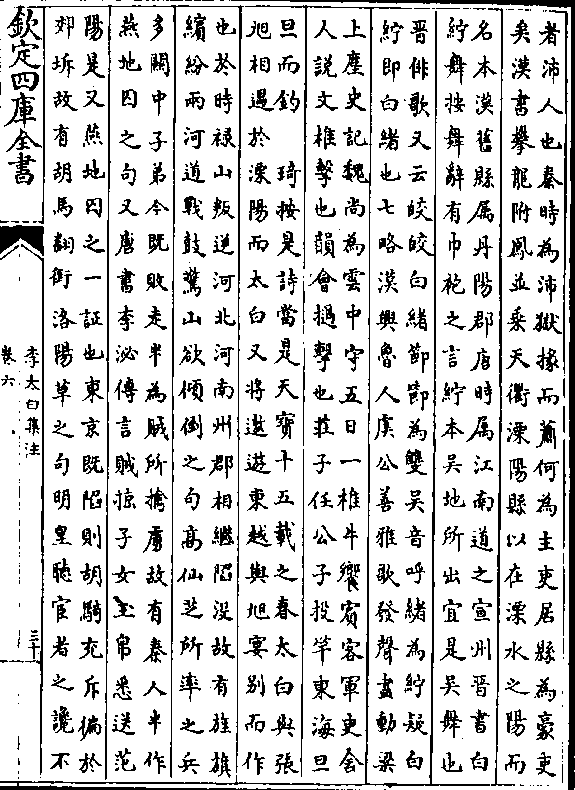 者沛人也秦時為沛獄掾而蕭何為主吏居縣為豪吏
矣漢書攀龍附鳳並乗天衢溧陽縣以在溧水之陽而
名本漢舊縣属丹陽郡唐時属江南道之宣州晉書白
紵舞按舞辭有巾袍之言紵本吳地所出宜是吳舞也
晉俳歌又云皎皎白緒節節為雙吳音呼緒為紵疑白
紵即白緒也七略漢興魯人虞公善雅歌發聲盡動梁
上塵史記魏尚為雲中守五日一椎牛饗賔客軍吏舍
人說文椎擊也韻會撾擊也莊子任公子投竿東海旦
旦而釣　琦按是詩當是天寳十五載之春太白與張
旭相遇於溧陽而太白又將遨遊東越與旭宴别而作
也於時禄山叛逆河北河南州郡相繼陷没故有旌旗
繽紛兩河道戰鼓驚山欲傾倒之句高仙芝所率之兵
多關中子弟今既敗走半為賊所擒虜故有秦人半作
燕地囚之句又唐書李泌傳言賊掠子女玉帛悉送范
陽是又燕地囚之一証也東京既陷則胡騎充斥徧於
郊坼故有胡馬翻銜洛陽草之句明皇聽宦者之讒不
欽定四庫全書
李太白集注
卷六
三十